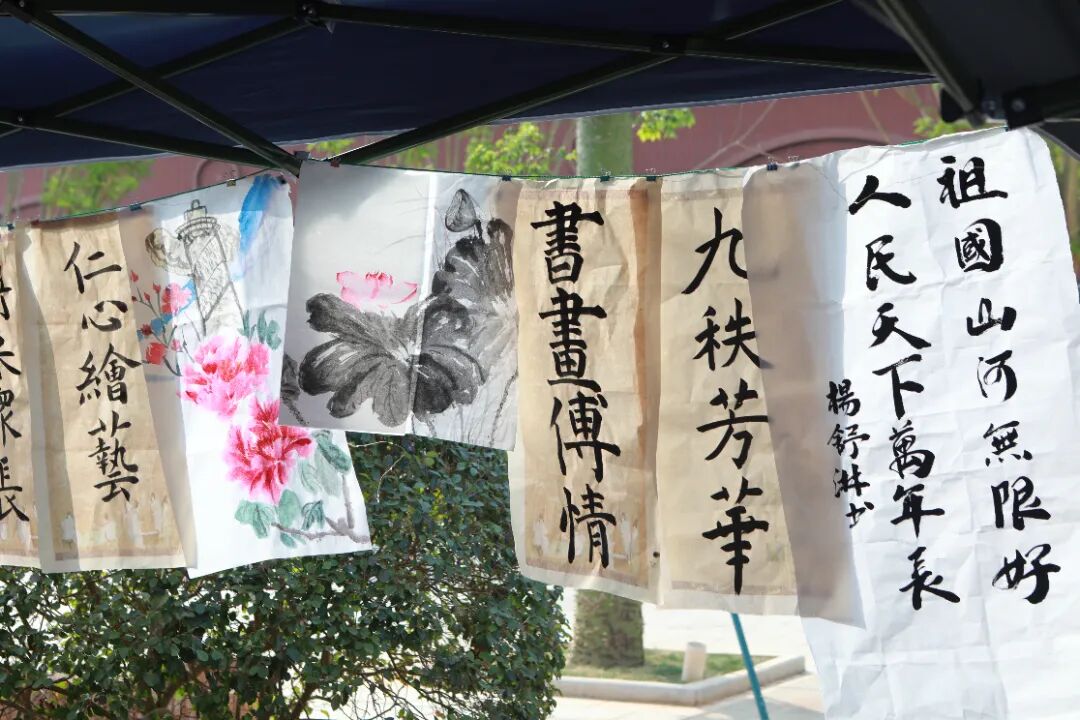 祖國山河無限好
人民天下萬年長
楊舒淋书
九秩芳華
書畫傅情
仁心繪藝